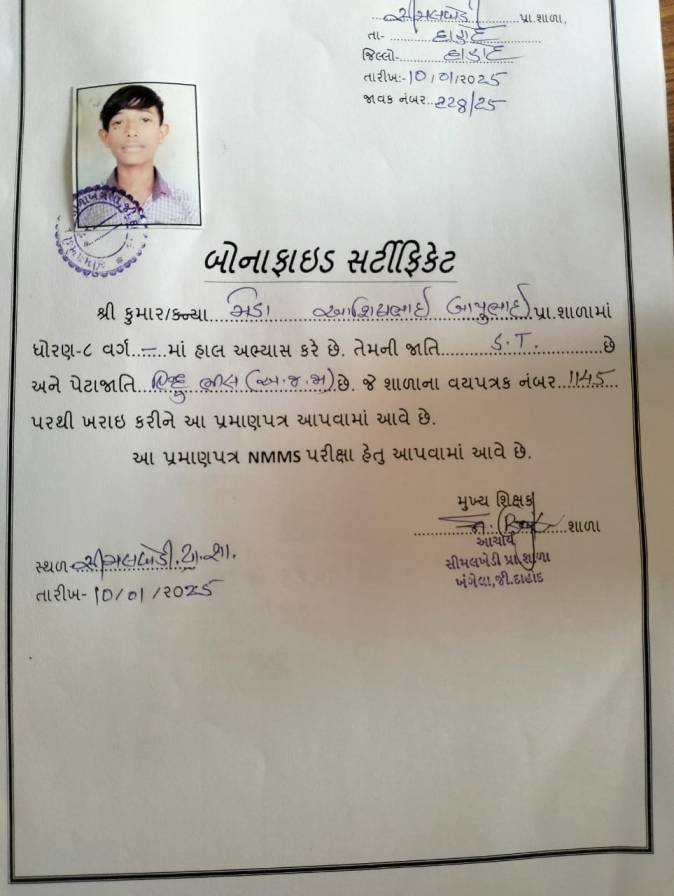 સીમલખેડી પ્રા.શાળા,
તા- દાહોદ
જિલ્લો- દાહોદ
તારીખ:- 10/01/2025
જાવક નંબર..228/25
બોનાફાઇડ સર્ટીફિકેટ
શ્રી કુમાર/કન્યા મિડા આશિષભાઈ બાપુભાઈ પ્રા.શાળામાં
ધોરણ-૮ વર્ગ..—..માં હાલ અભ્યાસ કરે છે. તેમની જાતિ S.T. છે
અને પેટાજાતિ હિન્દુ ભીલ (અ.જ.જા) છે. જે શાળાના વયપત્રક નંબર..1145
પરથી ખરાઇ કરીને આ પ્રમાણપત્ર આપવામાં આવે છે.
આ પ્રમાણપત્ર NMMS પરીક્ષા હેતુ આપવામાં આવે છે.
મુખ્ય શિક્ષક
શાળા
આચાર્ય
સીમલખેડી પ્રા.શાળા
ખંગેલા,જી.દાહોદ
સ્થળ- સીમલખેડી.પ્રા.શા.
તારીખ- 10/01/2025